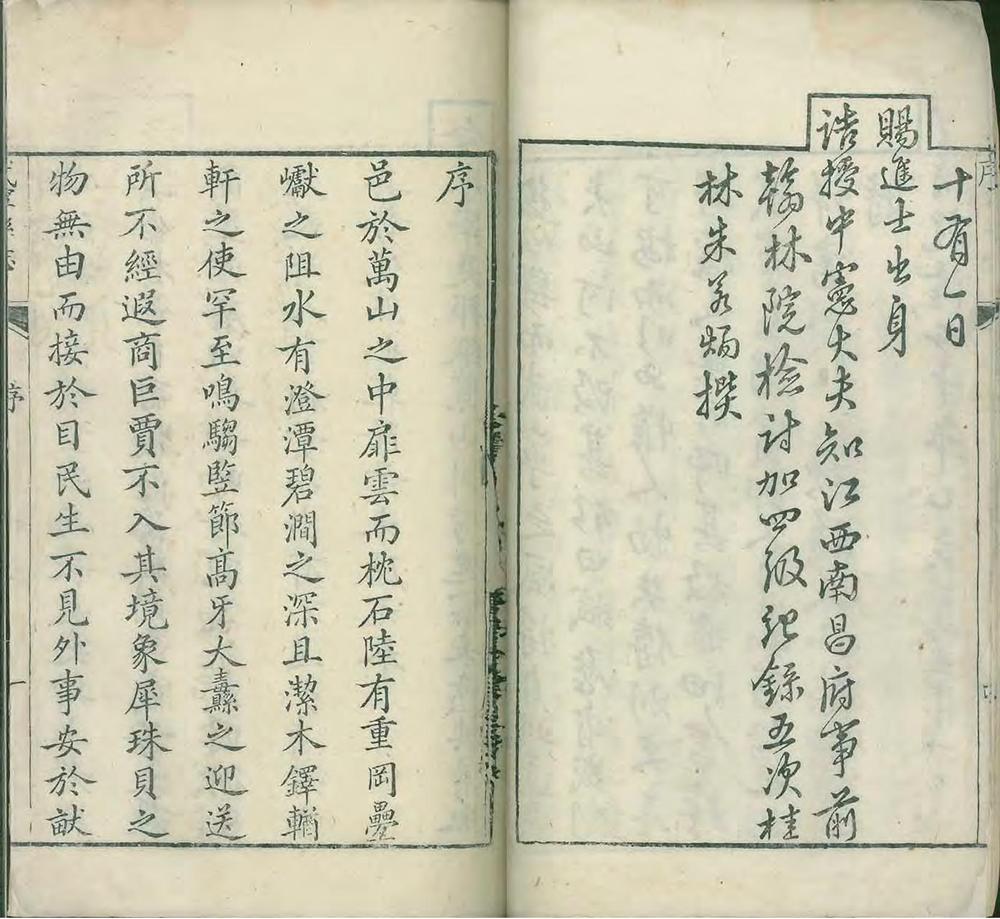 十有一日
賜進士出身
誥授中憲大夫知江西南昌府事前
翰林院檢討加四級紀錄五次桂
林朱若炳撰
序
邑於萬山之中扉雲而枕石陸有重岡疊
巘之阻水有澄潭碧澗之深且潔木鐸輶
軒之使罕至鳴騶監節高牙大纛之迎送
所不經遐商巨賈不入其境象犀珠貝之
物無由而接於目民生不見外事安於猷
序
一